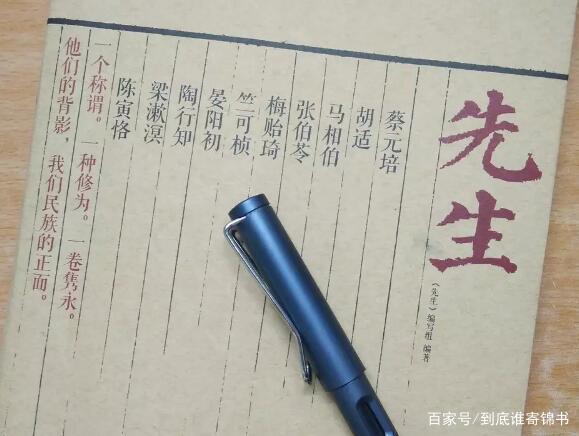 先生
《先生》编写组 编著
蔡元培
胡适
马相伯
张伯苓
梅贻琦
竺可桢
晏阳初
陶行知
梁漱溟
陈寅恪
一个称谓。一种修为。一卷隽永。
他们的背影，我们民族的正面。
百家号/到底谁寄锦书